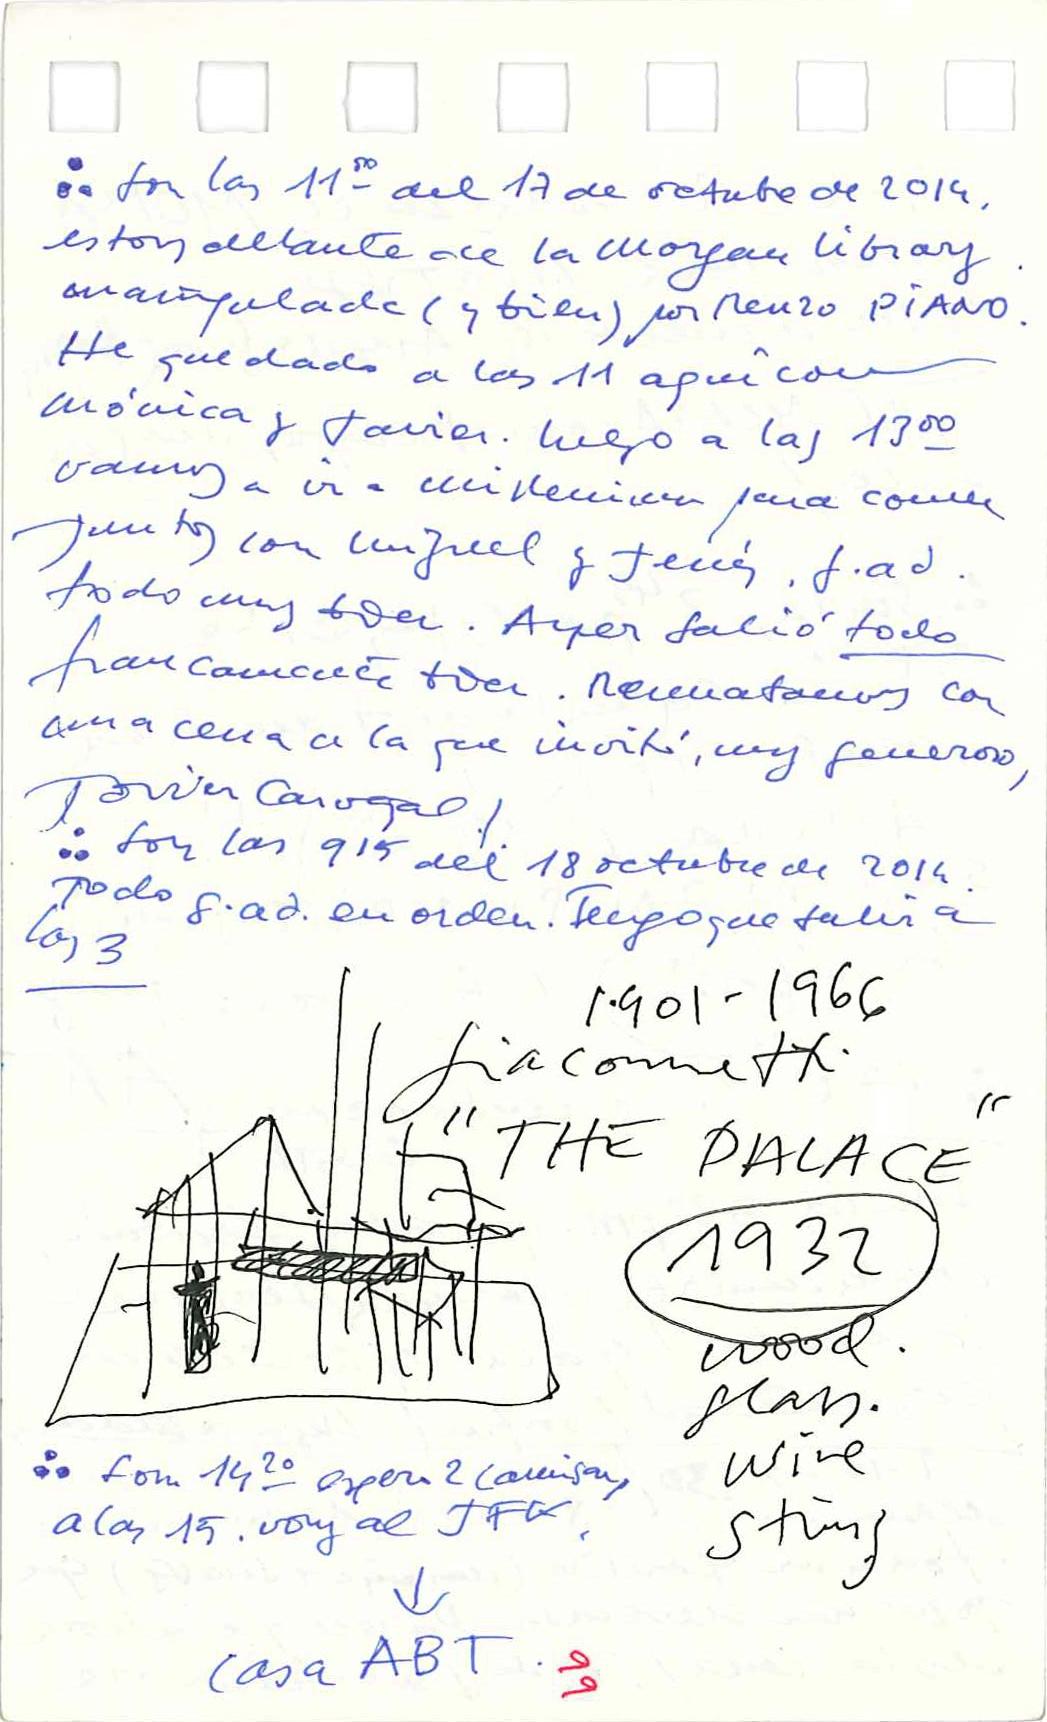 ∴ Son las 11⁰⁰ del 17 de octubre de 2014,
estoy delante de la Morgan Library.
manipulada (y bien) por Renzo PIANO.
He quedado a las 11 aquí con
Mónica y Javier. Luego a las 13⁰⁰
vamos a ir a para comer
juntos con Miguel y Jesús, g.a.d.
todo muy bien. Ayer salió todo
francamente bien. Rematamos con
una cena a la que invitó, muy generoso,
Javier Carvajal!
∴ Son las 9 15 del 18 octubre de 2014.
Todo g.a.d. en orden. Tengo que salir a
las 3
1901-1966
Giacometti.
"THE PALACE"
1932
wood.
glass.
wire
string
∴ Son 14²⁰ 2 camisas,
a las 15. voy al JFK.
↓
casa ABT.
99